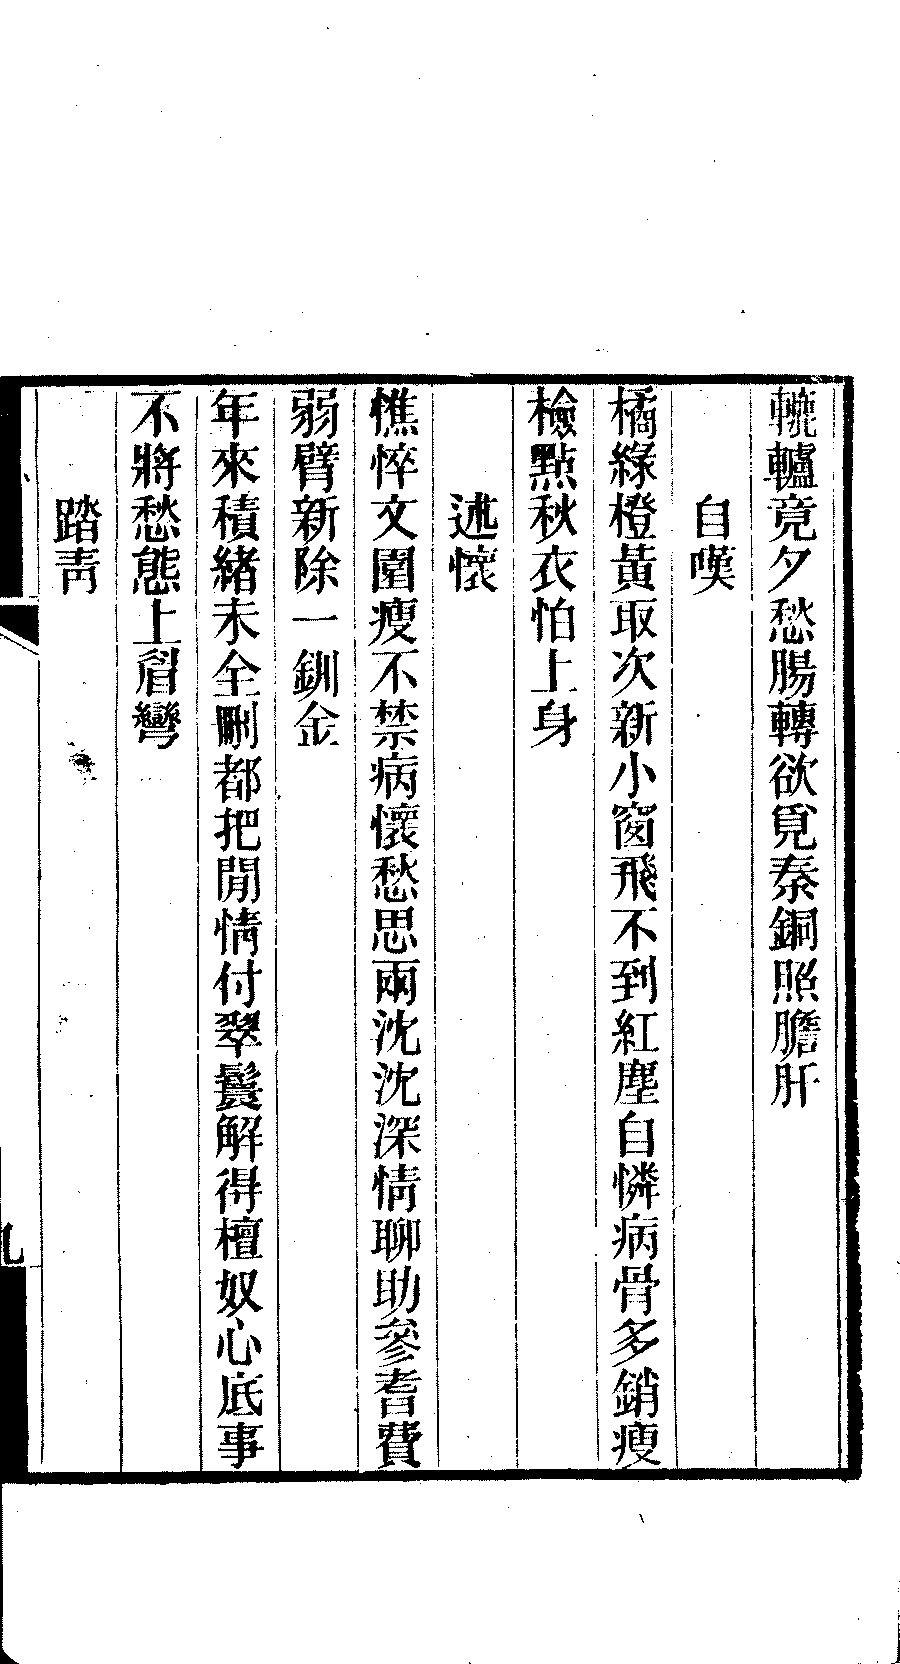 轆轤竟夕愁腸轉欲覓秦銅照膽肝
自嘆
橘綠橙黃取次新小窗飛不到紅塵自憐病骨多銷瘦
檢點秋衣怕上身
述懷
憔悴文園瘦不禁病懷愁思兩沈沈深情聊助參耆費
弱臂新除一釧金
年來積緒未全刪都把閒情付翠鬟解得檀奴心底事
不將愁態上眉彎
踏靑
九